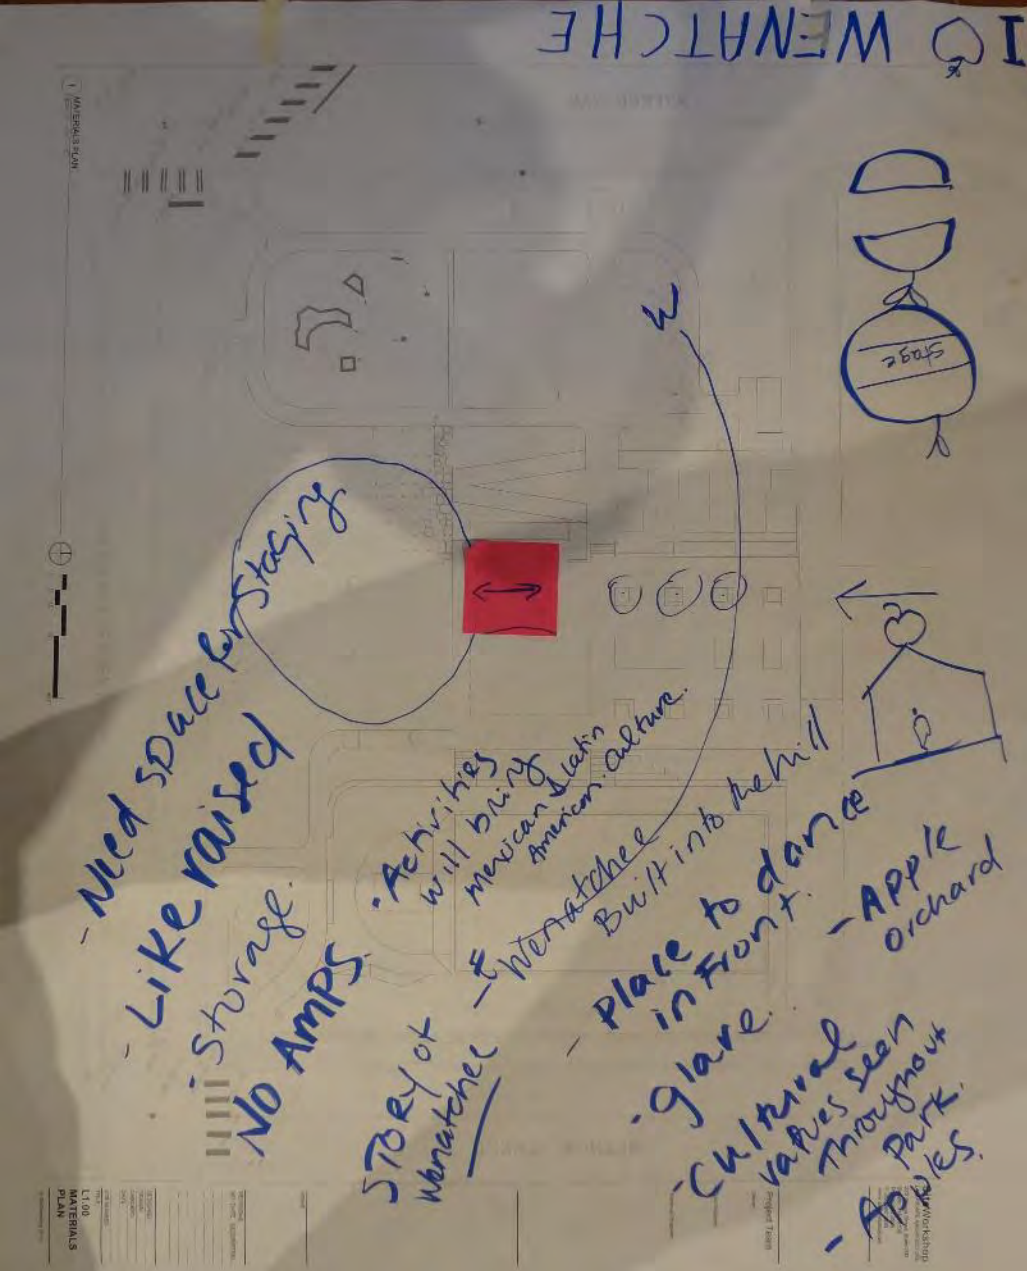 I WENATCHE
stage
- Need space for staging
- Like raised
- Storage.
No AMPS.
• Activities
will bring
mexican & latin
American culture.
STORY of
Wenatchee
Wenatchee
Built into the hill
- place to dance
in Front.
- glare.
- Apple
orchard
- Cultural
values seen
throughout
Park.
- Apples.
1 MATERIALS PLAN
L1.00
MATERIALS
PLAN
Project Team
Workshop